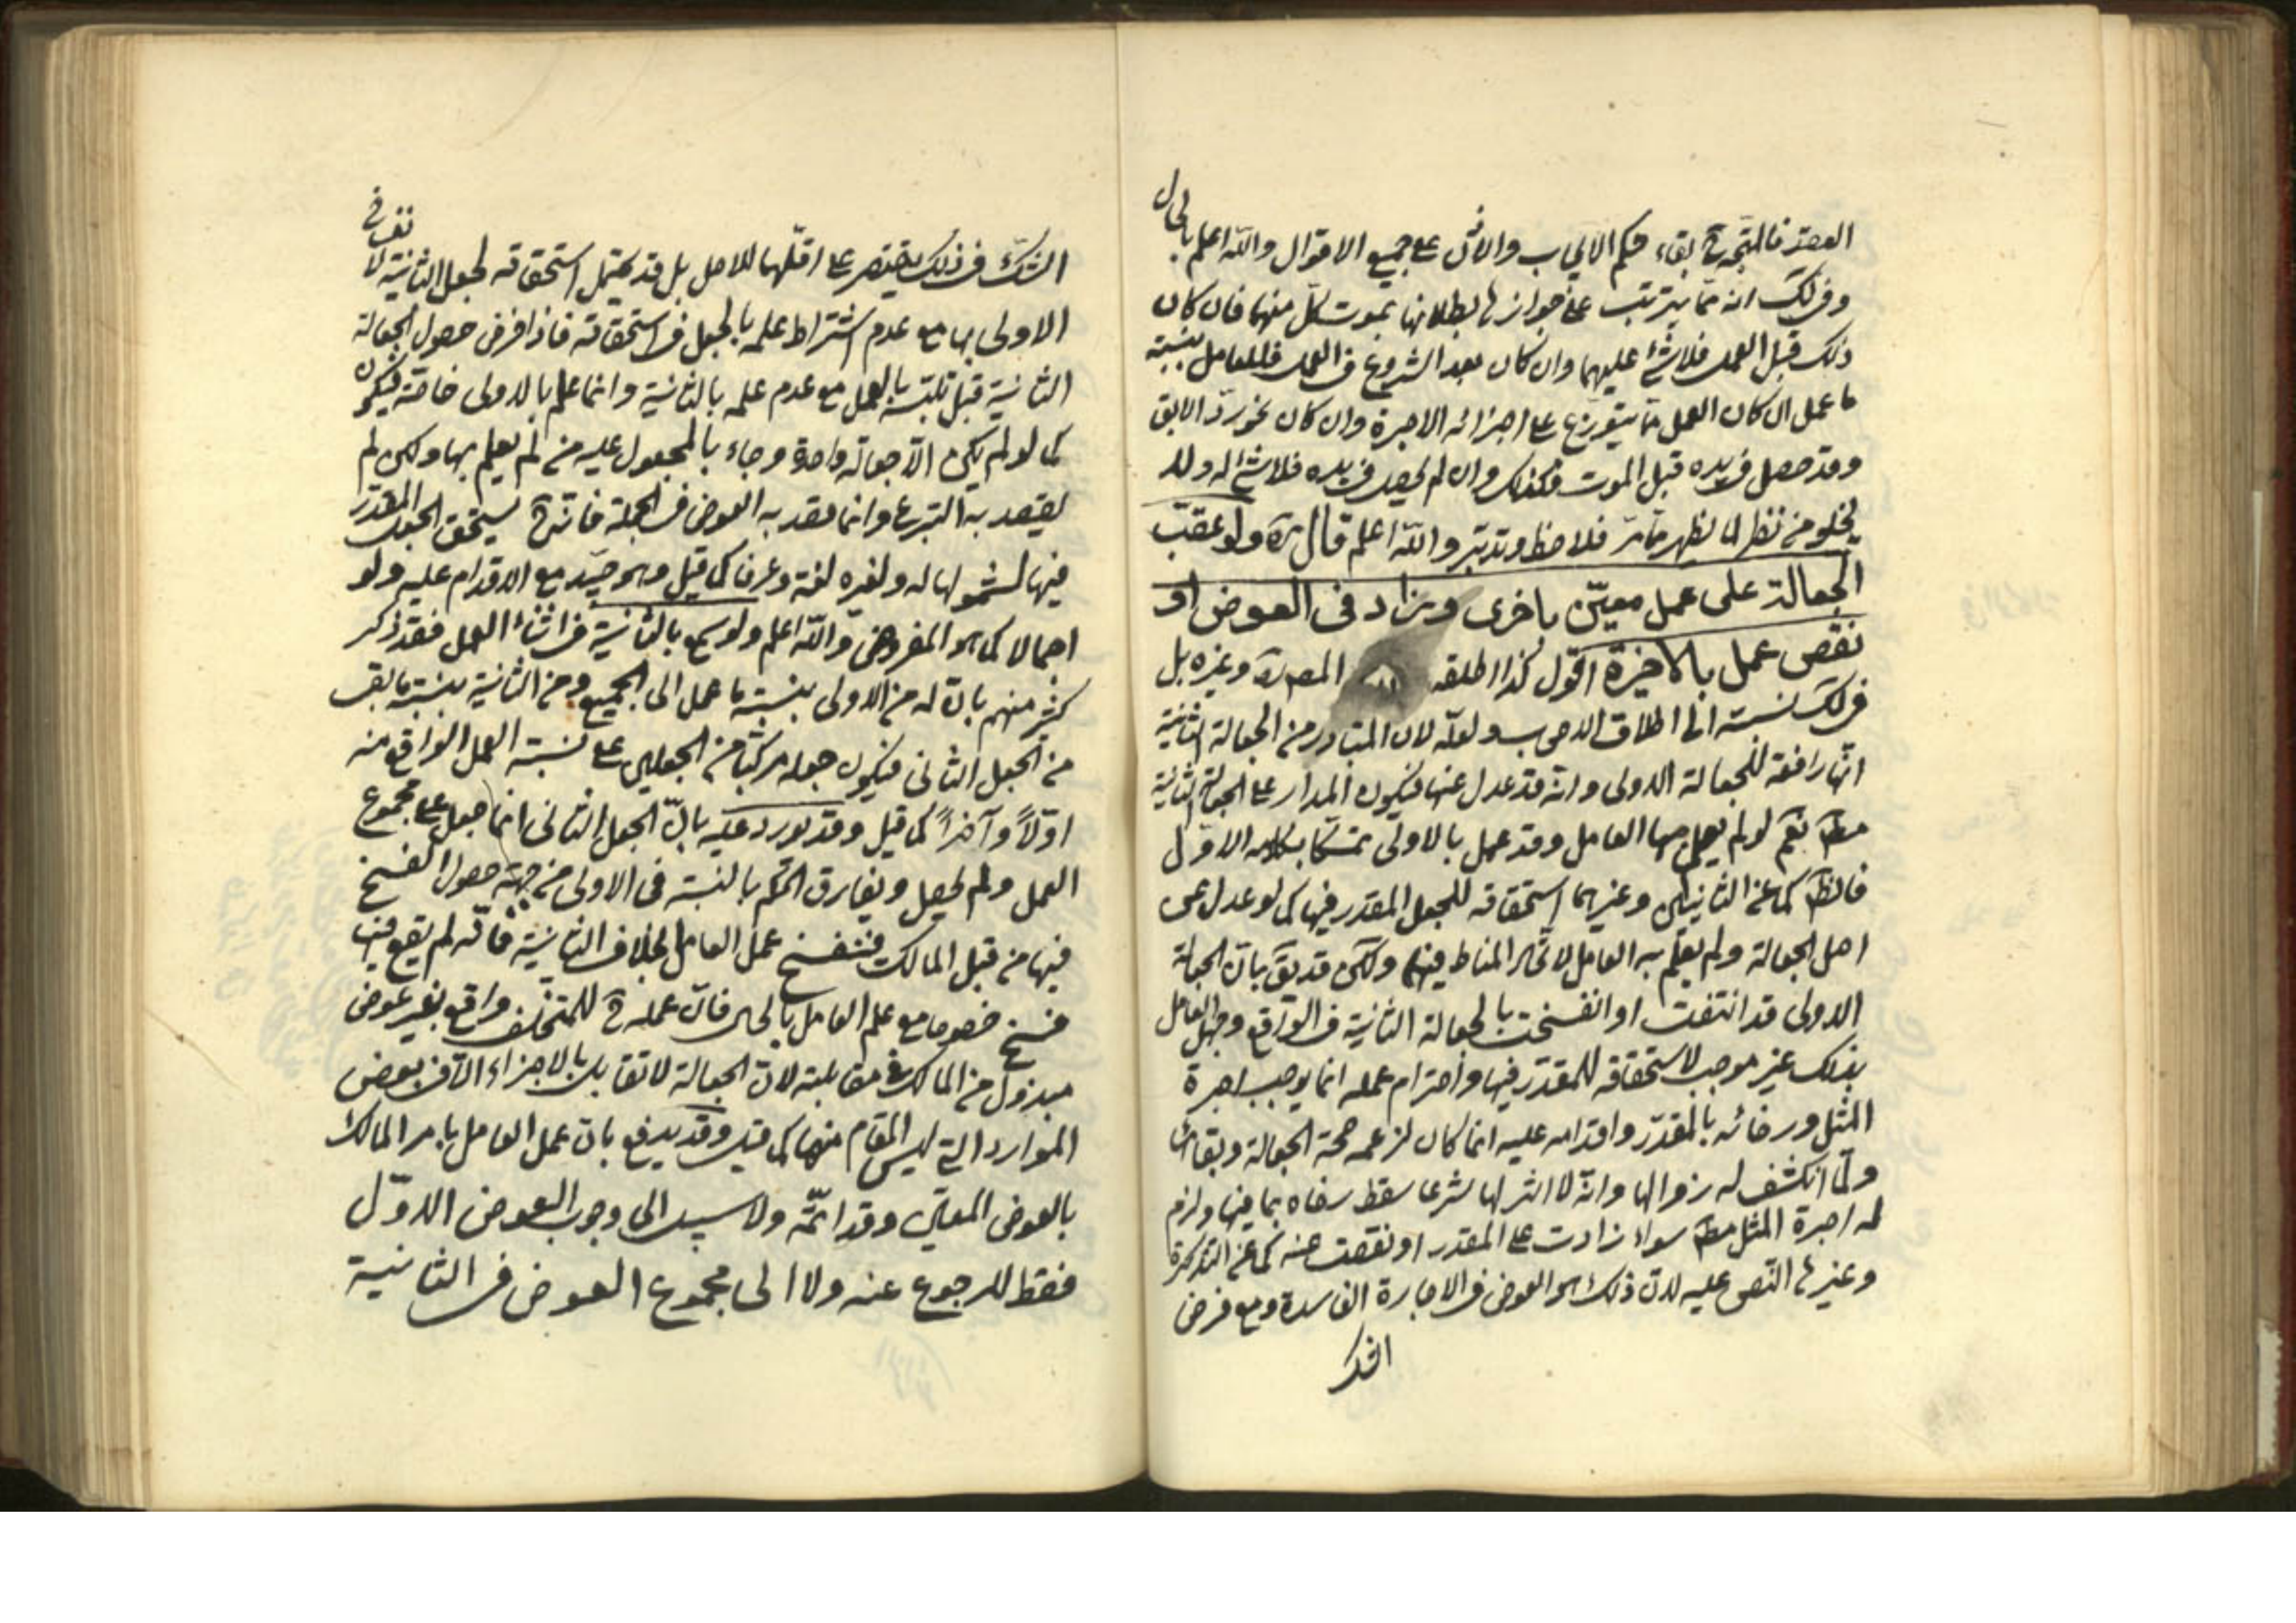 العقد فالمتجه ح بقاء حكم الايجاب والاذن على جميع الاقوال والله اعلم بالحال
وفى لك انه مما يترتب على جوازها بطلانها بموت كل منهما فان كان
ذلك قبل العمل فلا شئ عليهما وان كان بعد الشروع فى العمل فللعامل بنسبة
ما عمل ان كان العمل مما يتوزع على اجزائه الاجرة وان كان نحو ردّ الابق
وقد حصل فى يده قبل الموت فكذلك وان لم يحصل فى يده فلا شئ له ولا
يخلو من نظر لما يظهر مما مرّ فلاحظ وتدبّر والله اعلم قال ره ولو عقّب
الجعالة على عمل معيّن باخرى وزاد فى العوض او
نقص عمل بالاخيرة اقول كذا اطلقه المصره وغيره بل
فى لك نسبته الى اطلاق الاصحاب ولعله لان المتبادر من الجعالة الثانية
انّها رافعة للجعالة الاولى وانه قد عدل عنها فيكون المدار على الجعالة الثانية
مط نعم لو لم يعلم بها العامل وقد عمل بالاولى تمسكا بكلامه الاول
فالظ كما عن الثانيين وغيرهما استحقاقه للجعل المقدر فيها كما لو عدل عن
اصل الجعالة ولم يعلم به العامل لاتحاد المناط فيهما ولكن قد يق بان الجعالة
الاولى قد انتفت او انفسخت بالجعالة الثانية فى الواقع وجهل العامل
بذلك غير موجب لاستحقاقه للمقدّر فيها واحترام عمله انما يوجب اجرة
المثل ورضائه بالمقدّر واقدامه عليه انما كان لزعمه صحة الجعالة وبقائها
ولمّا انكشف له زوالها وانه لا اثر لها شرعا سقط رضاه بما فيها ولزم
له اجرة المثل مط سواء زادت على المقدر او نقصت عنه كما عن التذكرة
وغيرها النص عليه لان ذلك هو العوض فى الاجارة الفاسدة ومع فرض
الشك
الشك فى ذلك يقتصر على اقلّهما للاصل بل قد يحتمل استحقاقه لجعل الثانية لا
الاولى بها مع عدم اشتراط علمه بالجعل فى استحقاقه فاذا فرض حصول الجعالة
الثانية قبل تلبّسه بالعمل مع عدم علمه بالثانية وانما علم بالاولى خاصة فيكون
كما لو لم يكن الّا جعالة واحدة وجاء بالمجعول عليه من لم يعلم بها ولكن لم
يقصد به التبرع وانما قصد به العوض فى الجملة فانه ح يستحق الجعل المقدر
فيها لشمولها له ولغيره لغة وعرفا كما قيل وهو جيّد مع الاقدام عليه ولو
اجمالا كما هو المفروض والله اعلم ولو سمع بالثانية فى اثناء العمل فقد ذكر
كثير منهم بان له من الاولى بنسبة ما عمل الى الجميع ومن الثانية بنسبة ما بقى
من الجعل الثانى فيكون جعله مركّبا من الجعلين على نسبة العمل الواقع منه
اوّلاً وآخراً كما قيل وقد يورد عليه بانّ الجعل الثانى انما جعل على مجموع
العمل ولم يحصل ويفارق الحكم بالنسبة فى الاولى من جهة حصول الفسخ
فيها من قبل المالك فينفسخ عمل العامل بخلاف الثانية فانّه لم يقع فيها
فسخ خصوصا مع علم العامل بالحال فانّ عمله ح للمتخلف واقع بغير عوض
مبذول من المالك فى مقابلته لان الجعالة لا تقابل بالاجزاء الّا فى بعض
الموارد التى ليس المقام منها كما قيل وقد يدفع بان عمل العامل بامر المالك
بالعوض المعيّن وقد اتمّه ولا سبيل الى وجوب العوض الاوّل
فقط للرجوع عنه ولا الى مجموع العوض فى الثانية